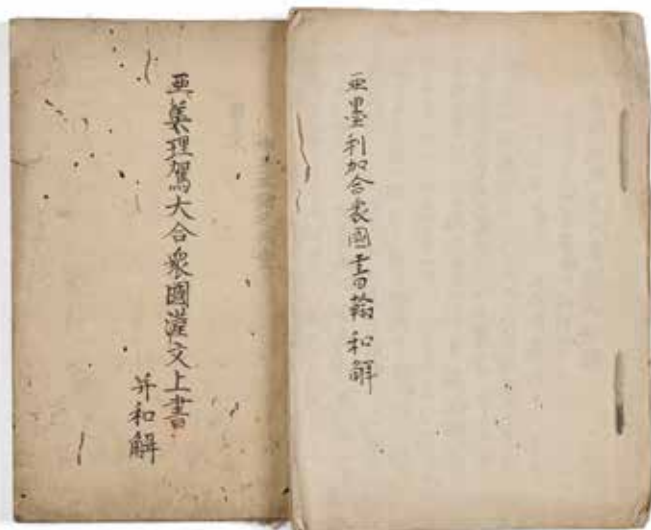 亜墨利加合衆國書翰和解
亜美理駕大合衆國漢文上書
并和解